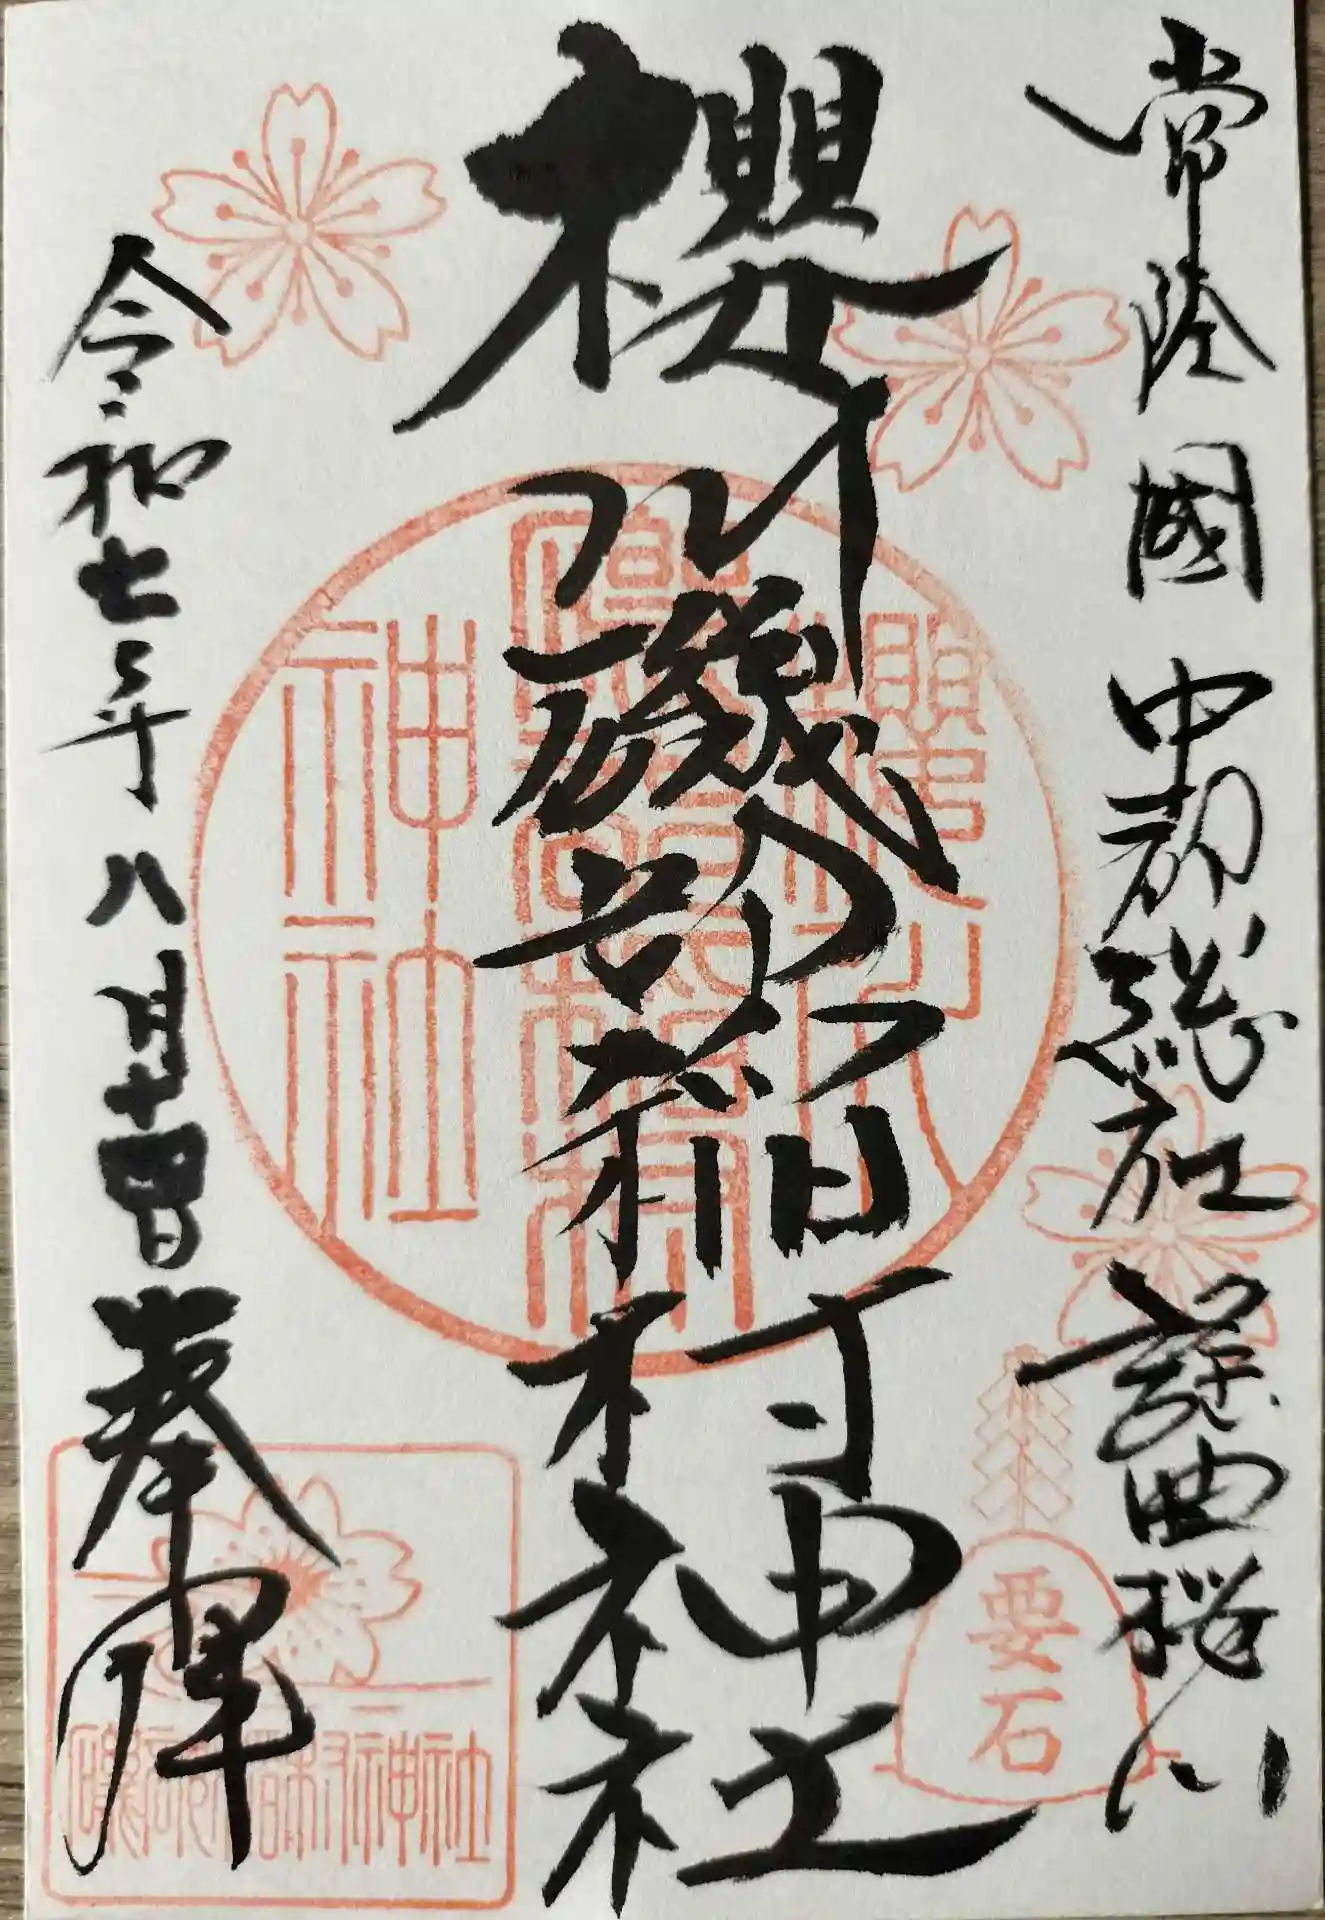 常陸國中郡総社謡曲桜川
櫻川磯部稲村神社
令和七年八月十四日奉拝
櫻川
磯部稲村
神社
要石
磯部稲村神社